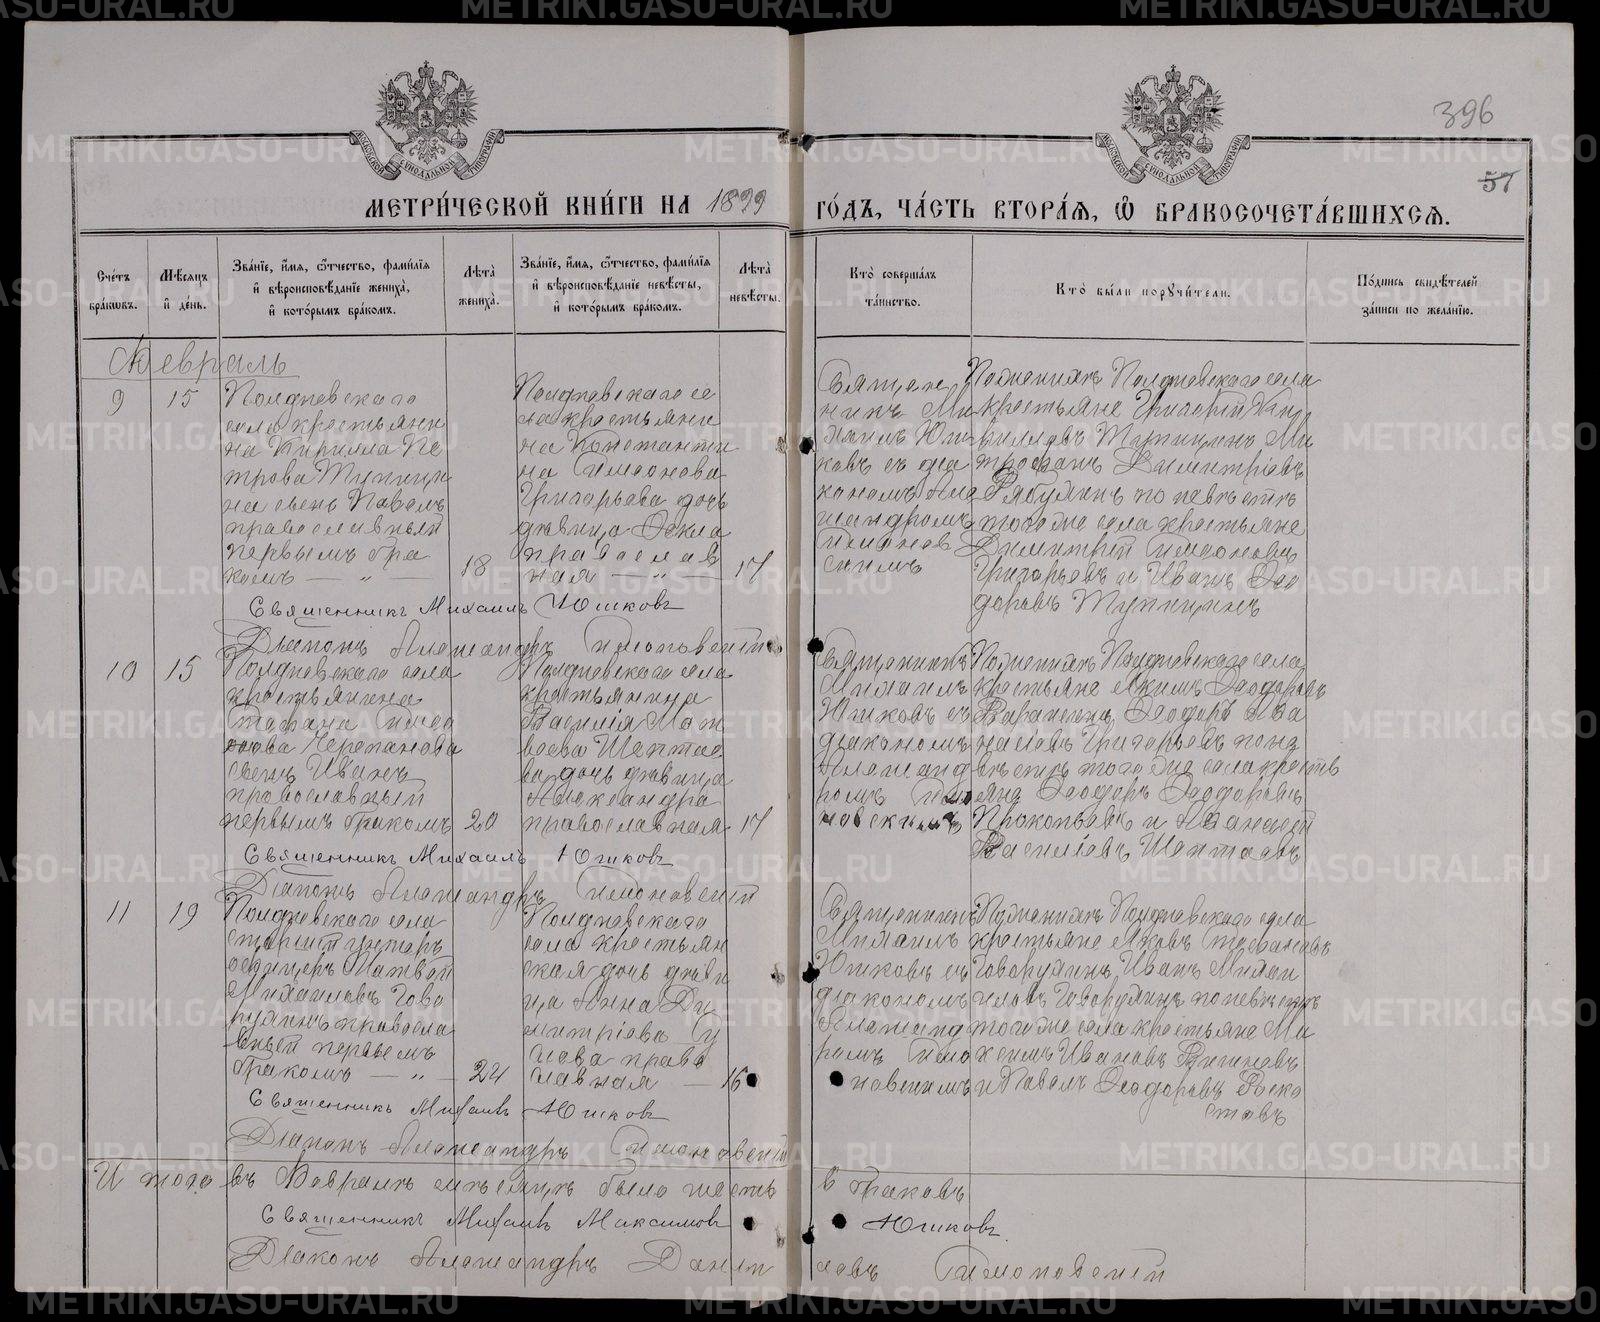 396
57
МОСКОВСКОЙ СѴНОДАЛЬНОЙ ТИПОГРАФІИ
МОСКОВСКОЙ СѴНОДАЛЬНОЙ ТИПОГРАФІИ
МЕТРИ́ЧЕСКОЙ КНИ́ГИ НА 1899 ГО́ДЪ, ЧА́СТЬ ВТОРА́Я, Ѡ҆ БРАКОСОЧЕТА́ВШИХСЯ.
Сче́тъ бра́кѡвъ.
Мѣ́сяцъ и҆ де́нь.
Зва́нїе, и҆́мя, ѻ҆́тчество, фами́лїя и҆ вѣроисповѣ́данїе жениха̀, и҆ кото́рымъ бра́комъ.
Лѣ́та жениха̀.
Зва́нїе, и҆́мя, ѻ҆́тчество, фами́лїя и҆ вѣроисповѣ́данїе невѣ́сты, и҆ кото́рымъ бра́комъ.
Лѣ́та невѣ́сты.
Кто̀ соверша́лъ та́инство.
Кто̀ бы́ли порꙋчи́тели.
По́дпись свидѣ́телей за́писи по жела́нїю.
Февраль
9
15
Полдневскаго
села крестьяни
на Кирилла Пе
трова Тупици
на сынъ Павелъ
православный
первымъ бра
комъ — „ —
18
Полдневскаго се
ла крестьяни
на Константи
на Симеонова
Григорьева дочь
дѣвица Ѳекла
православ
ная — „ —
17
Священ
никъ Ми
хаилъ Юш
ковъ съ діа
кономъ Але
ксандромъ
Симонов
скимъ
По женихѣ Полдневскаго села
крестьяне Григорій Кир
илловъ Тупицинъ Ми
трофанъ Димитріевъ
Рябухинъ по невѣстѣ
того же села крестьяне
Димитрій Симеоновъ
Григорьевъ и Иванъ Ѳео
доровъ Тупицинъ
Священникъ Михаилъ Юшковъ
Діаконъ Александръ Симоновскій
10
15
Полдневскаго села
крестьянина
Стефана Симео
нова Черепанова
сынъ Иванъ
православный
первымъ бракомъ
20
Полдневскаго села
крестьянина
Василія Мат
вѣева Шептае
ва дочь дѣвица
Александра
православная
17
Священникъ
Михаилъ
Юшковъ съ
діакономъ
Александ
ромъ Симо
новскимъ
По женихѣ Полдневскаго села
крестьяне Якимъ Ѳеодоровъ
Ѳеодоръ Аѳа
насіевъ Григорьевъ по не
вѣстѣ того же села кресть
яне Ѳеодоръ Ѳеодоровъ
Прокопьевъ и Аѳанасій
Василіевъ Шептаевъ
Священникъ Михаилъ Юшковъ
Діаконъ Александръ Симоновскій
11
19
Полдневскаго села
старшій унтеръ
офицеръ Матвей
Михаиловъ Гово
рухинъ правосла
вный первымъ
бракомъ — „ —
24
Полдневскаго
села крестьян
ская дочь дѣви
ца Анна Ди
митріева
право
славная —
16
Священникъ
Михаилъ
Юшковъ съ
діакономъ
Александ
ромъ Симо
новскимъ
По женихѣ Полдневскаго села
крестьяне Яковъ Стефановъ
Говорухинъ, Иванъ Михаи
ловъ Говорухинъ по невѣстѣ
того же села крестьяне Ма
ксимъ Ивановъ
и Павелъ Ѳеодоровъ
Священникъ Михаилъ Юшковъ
Діаконъ Александръ Симоновскій
Итого въ Февралѣ мѣсяцѣ было шесть 6 браковъ
Священникъ Михаилъ Максимовъ Юшковъ.
Діаконъ Александръ Данил ловъ Симоновскій
METRIKI.GASO-URAL.RU